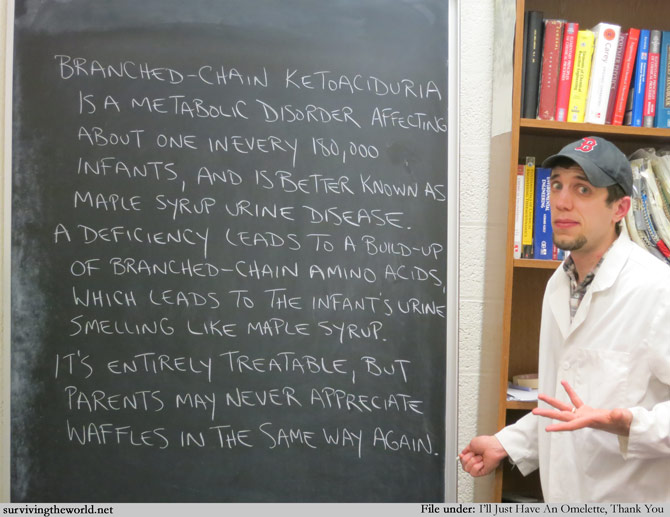 BRANCHED-CHAIN KETOACIDURIA
IS A METABOLIC DISORDER AFFECTING
ABOUT ONE IN EVERY 180,000
INFANTS, AND IS BETTER KNOWN AS
MAPLE SYRUP URINE DISEASE.
A DEFICIENCY LEADS TO A BUILD-UP
OF BRANCHED-CHAIN AMINO ACIDS,
WHICH LEADS TO THE INFANT'S URINE
SMELLING LIKE MAPLE SYRUP.
IT'S ENTIRELY TREATABLE, BUT
PARENTS MAY NEVER APPRECIATE
WAFFLES IN THE SAME WAY AGAIN.
B
Carey
survivingtheworld.net
File under: I'll Just Have An Omelette, Thank You